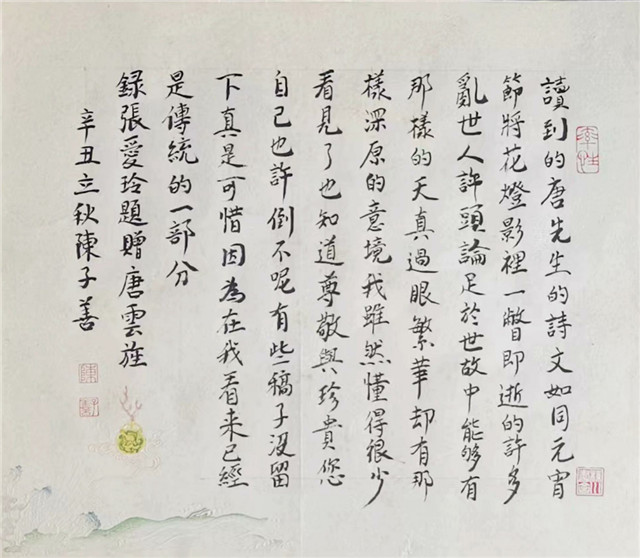 讀到的唐先生的詩文如同元宵
節將花燈影裡一瞥即逝的許多
亂世人評頭論足於世故中能够有
那樣的天真過眼繁華却有那
樣深原的意境我雖然懂得很少
看見了也知道尊敬與珍貴您
自己也許倒不呢有些稿子沒留
下真是可惜因為在我看来已經
是傳統的一部分
錄張愛玲題贈唐雲旌
辛丑立秋陳子善
率性
陳
子善